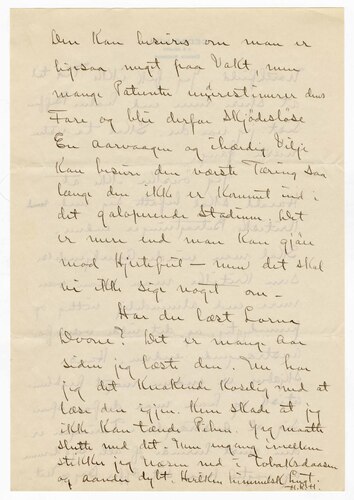 Den kan besøres om man er
ligesaa meget paa Vakt, men
mange Patienter underestimerer dens
Fare og blir derfor skjødesløse
En aarvaagen og ihærdig Vilje
kan besøre den værste Tæring saa
længe den ikke er kommet ind i
det galoperende Stadium. Det
er mere end man kan gjøre
mod Hjertefeil — men det skal
vi ikke sige noget om —
Har du læst Lorna
Doone? Det er mange Aar
siden jeg læste den. Nu har
jeg det knakende koselig med at
læse den igjen. Kun skade at jeg
ikke kan tænde Piben. Jeg maatte
slutte med det. Men engang imellem
stikker jeg Næsen ned i Tobaksdaasen
og aander dybt. Herlken himmelsk
H.R.H.